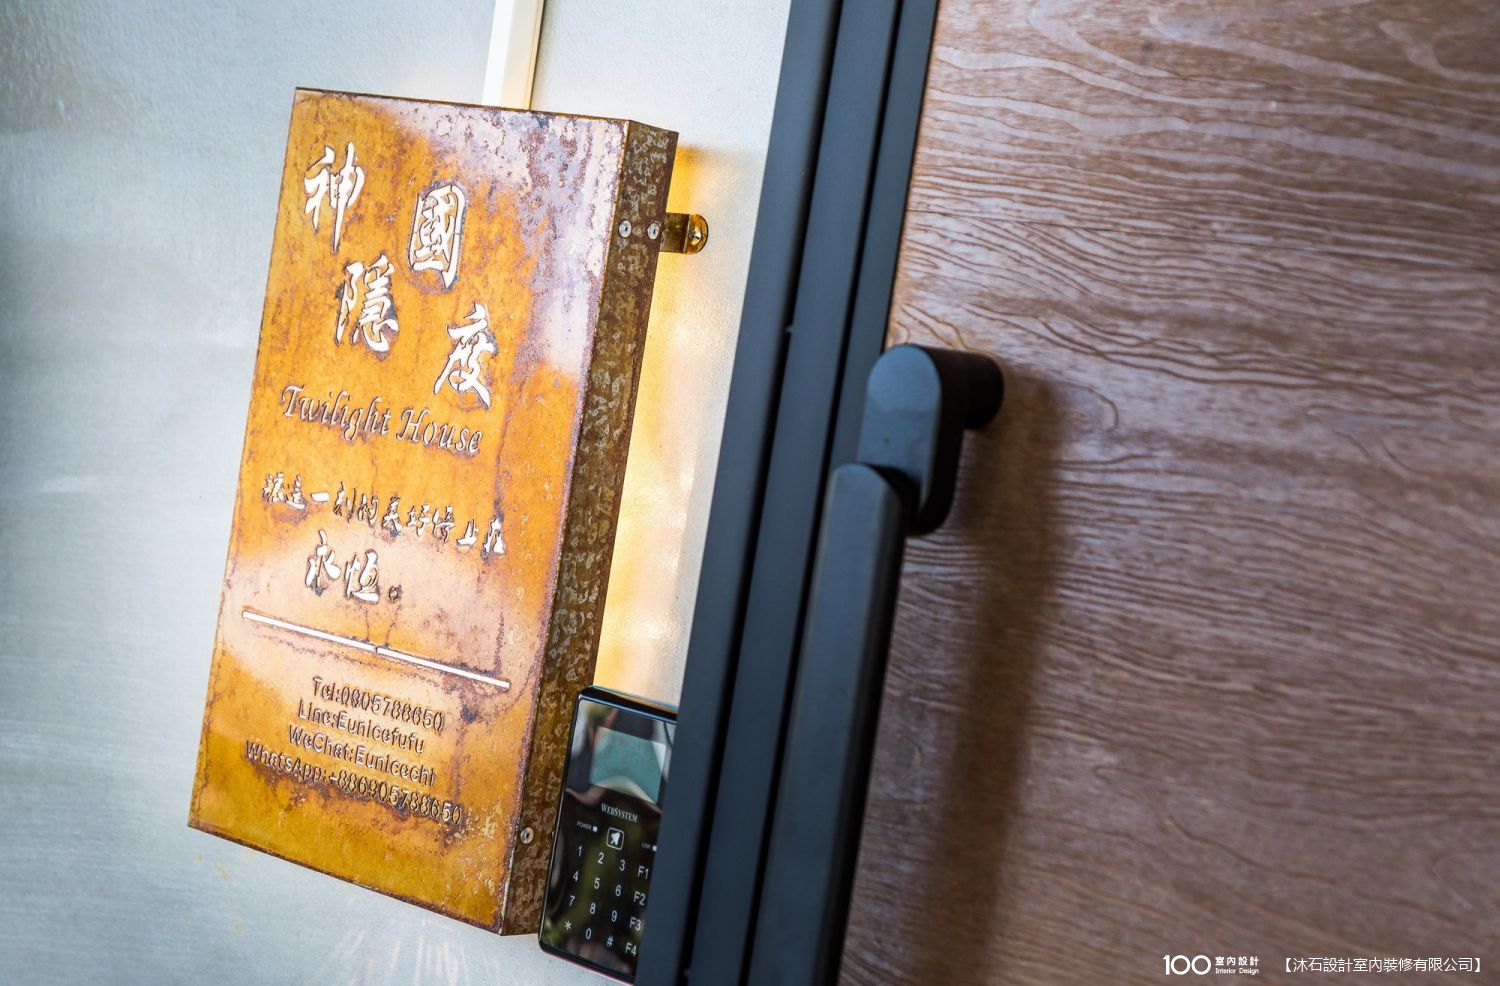 神隱
國度
Twilight House
讓這一刻的美好停止在
永恆。
Tel:0905788650
Line:Eunicefufu
WeChat:Eunicechi
WhatsApp:+886905788650
WEBSYSTEM
POWER
LINK
1 2 3 F1
4 5 6 F2
7 8 9 F3
* 0 # F4
100 室內設計
Interior Design
【沐石設計室內裝修有限公司】